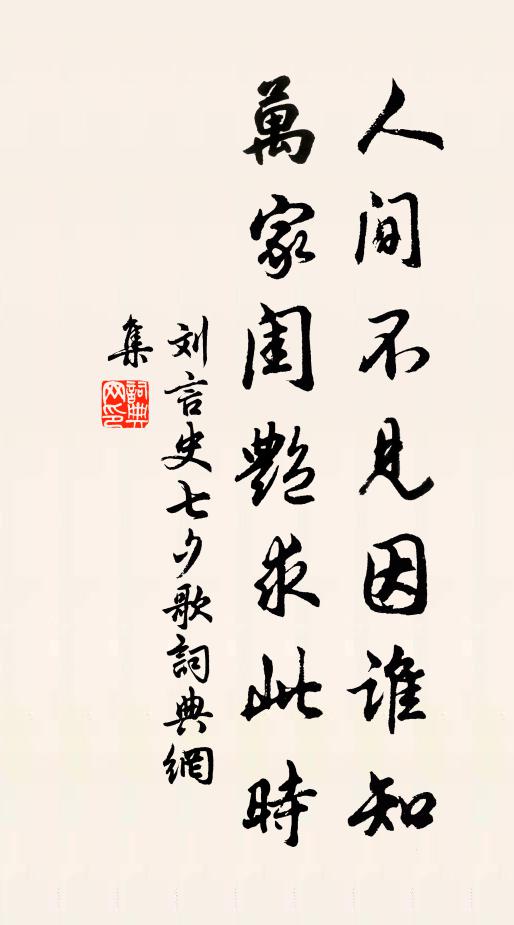 人间不見因誰知
萬家閨艷求此時
刘言史七夕歌詞典網
集
詞典網印